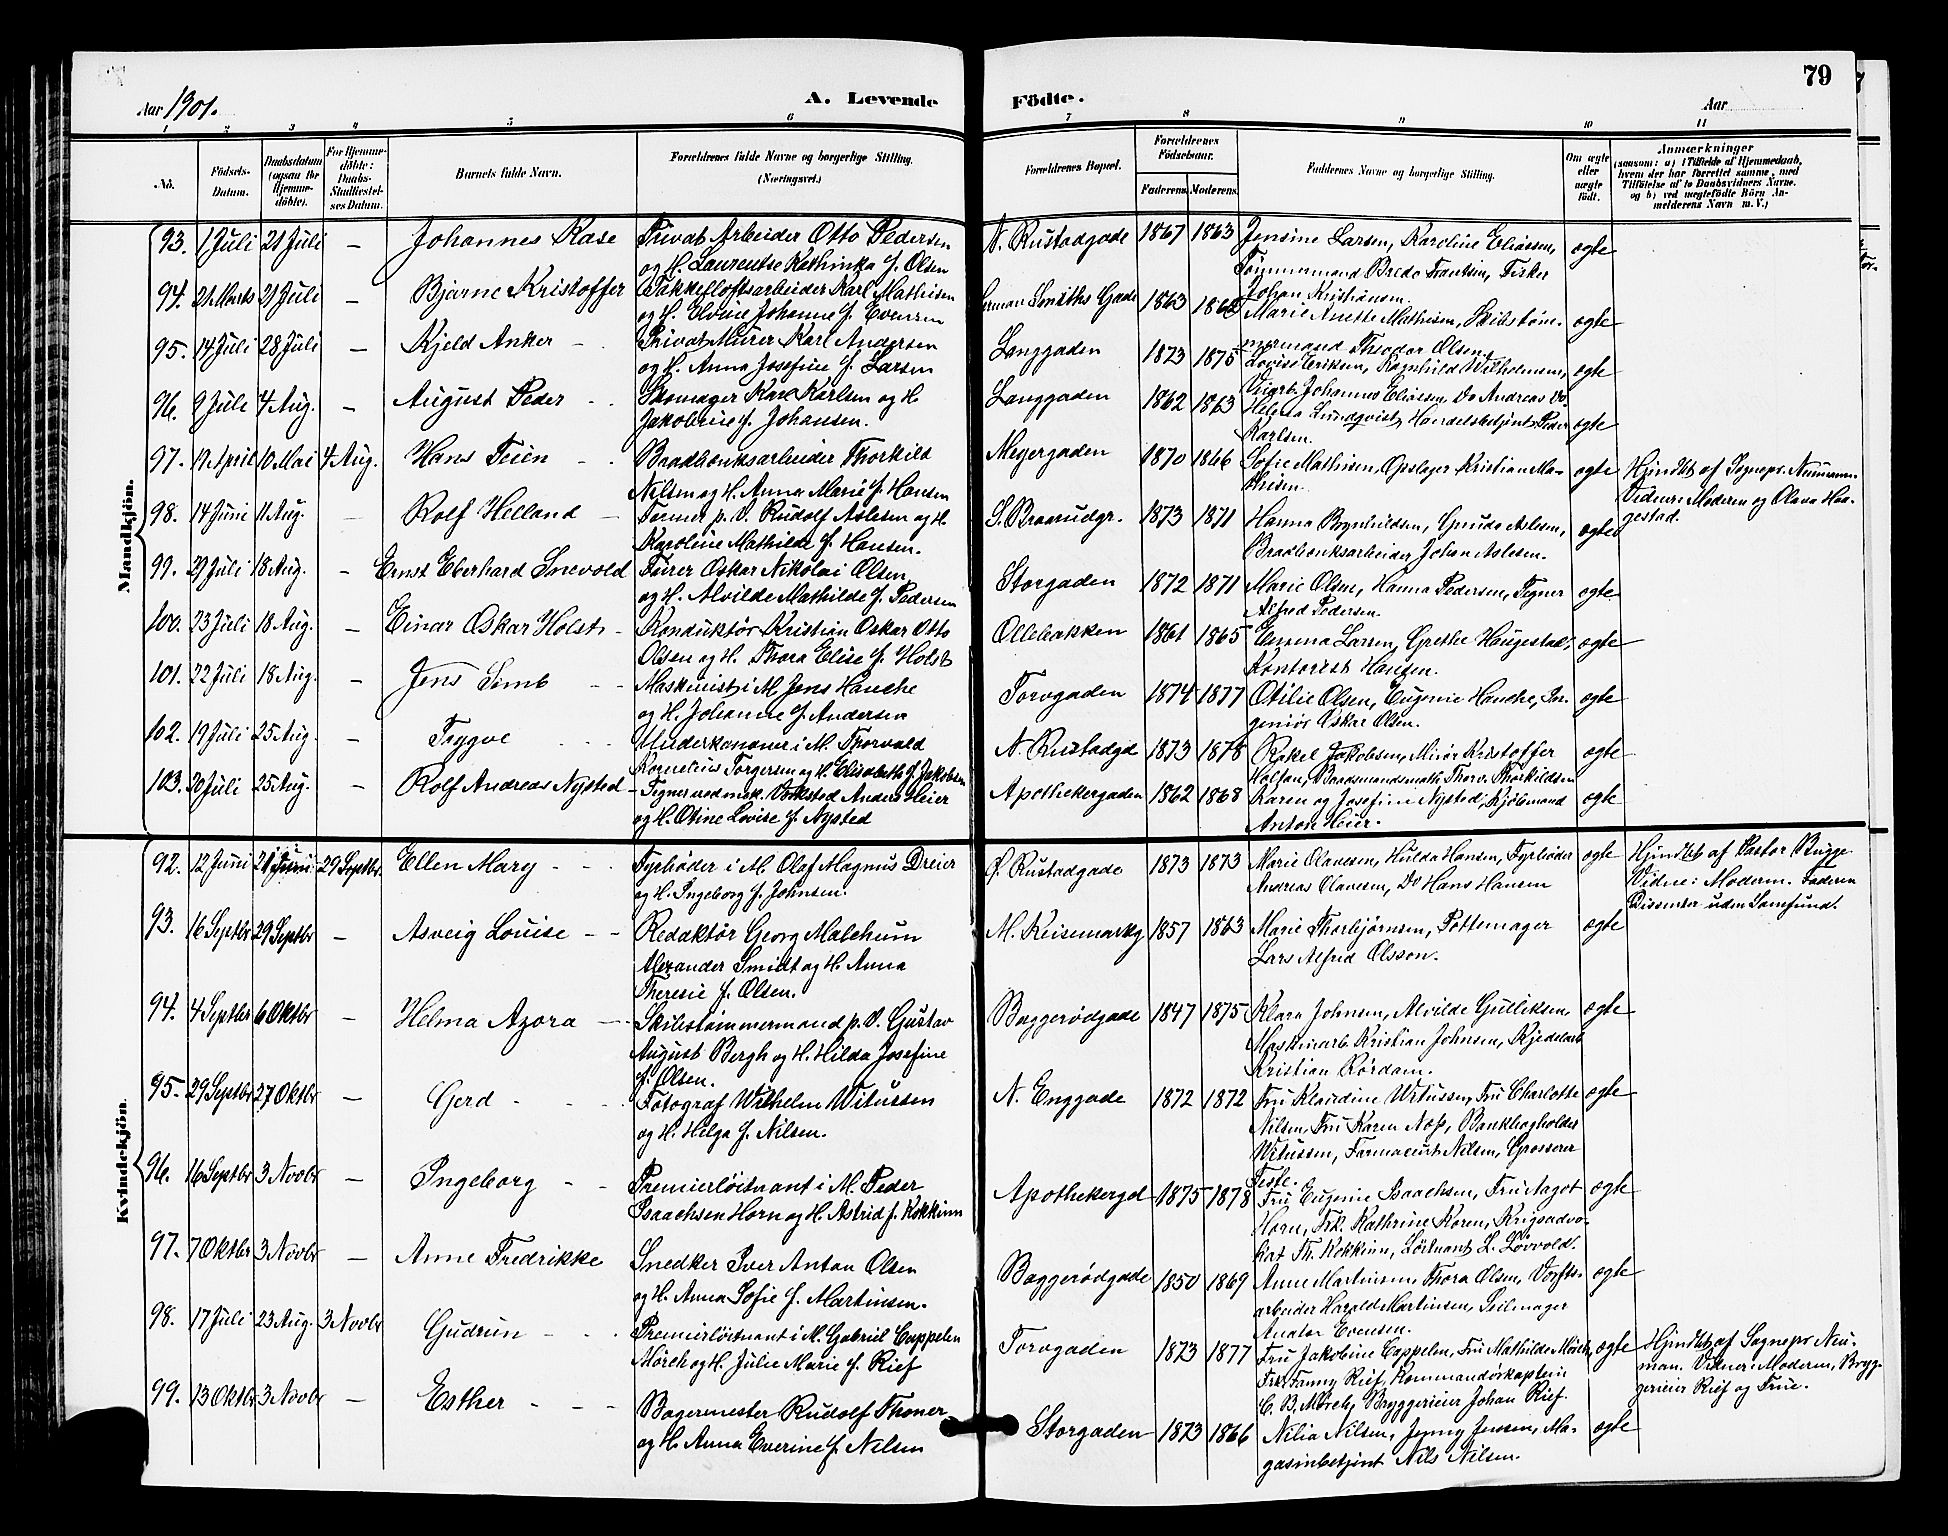 79
Aar 1901.
A. Levende
Födte.
Aar
1 2 3 4 5 6 7 8 9 10 11
No.
Födsels-
Datum.
Daabsdatum
(ogsaa for
Hjemme-
döbte).
For Hjemme-
döbte:
Daabs-
Stadfæstel-
ses Datum.
Barnets fulde Navn.
Forældrenes fulde Navne og borgerlige Stilling.
(Næringsvei.)
Forældrenes Bopæl.
Forældrenes
Födselsaar.
Faderens. Moderens.
Faddernes Navne og borgerlige Stilling.
Om ægte
eller
uægte
födt.
Anmærkninger
(saasom: a) i Tilfælde af Hjemmedaab,
hvem der har forrettet samme, med
Tilföielse af to Daabsvidners Navne.
og b) ved uægtefödte Börn An-
melderens Navn m. V.)
Mandkjön.
93. 1 Juli 21 Juli – Johannes Rase
Privat Arbeider Otto Pedersen
og H. Laurentse Kathinka f. Olsen
N. Rustadgade 1867 1863
Jensine Larsen, Karoline Eliassen,
Tømmermand Brede Frantsen, Fisker
Johan Kristiansen.
ægte
94. 21 Marts 21 Juli – Bjarne Kristoffer
Takkelloftsarbeider Karl Mathisen
og H. Elvine Johanne f. Evensen
Herman Smiths Gade 1863 1862
Marie Anette Mathisen, Skibstøm-
mermand Theodor Olsen.
ægte
95. 14 Juli 28 Juli – Kjeld Anker –
Privat Murer Karl Andersen
og H. Anna Josefine f. Larsen
Langgaden 1873 1875
Lovise Eriksen, Ragnhild Wilhelmsen,
Johannes Eliassen, Do Andreas Do
ægte
96. 9 Juli 4 Aug. – August Peder – –
Skomager Karl Karlsen og H.
Jakobine f. Johansen.
Langgaden 1862 1863
Helena Lundqvist, Handelsbetjent Peder
Karlsen.
ægte
97. 17 April 10 Mai 4 Aug. Hans Feien – –
Bradbænksarbeider Thorkild
Nilsen og H. Anna Marie f. Hansen
Meyergaden 1870 1866
Sofie Mathisen, Opslager Kristian Ma-
thisen.
ægte
Hjmdbt af Sognepr. Neumann.
Vidner: Moderen og Olava Hau-
gestad.
98. 14 Juni 11 Aug. – Rolf Helland –
Former p. V. Rudolf Aslesen og H.
Karoline Mathilde f. Hansen.
S. Braarudgr. 1873 1871
Hanna Brynhildsen, Gunda Aslesen,
Bradbænksarbeider Johan Aslesen.
ægte
99. 29 Juli 18 Aug. – Ernst Eberhard Snevold
Fører Oskar Nikolai Olsen
og H. Alvilde Mathilde f. Pedersen
Storgaden 1872 1871
Marie Olsen, Hanna Pedersen, Tegner
Alfred Pedersen.
ægte
100. 23 Juli 18 Aug. – Einar Oskar Holst –
Konduktør Kristian Oskar Otto
Olsen og H. Thora Elise f. Holst
Ollebakken 1861 1865
Emma Larsen, Grethe Haugestad,
Kontorist Hansen.
ægte
101. 22 Juli 18 Aug. – Jens Simb – –
Maskinist i M. Jens Hanche
og H. Johanne f. Andersen
Torvgaden 1874 1877
Otilie Olsen, Eugenie Hanche, In-
geniør Oskar Olsen.
ægte
102. 19 Juli 25 Aug. – Trygve – – –
Underkanoner i M. Thorvald
Kornelius Torgersen og H. Elisabeth f. Jakobsen
N. Rustadgd 1873 1878
Rakel Jakobsen, Minør Kristoffer
Holtan, Baadsmandsmath Thorv. Thorkildsen
ægte
103. 20 Juli 25 Aug. – Rolf Andreas Nysted –
Tegner ved mek. Værksted Anders Heier
og H. Otine Lovise f. Nysted
Apothekergaden 1862 1868
Karen og Josefine Nysted, Kjøbmand
Anton Heier.
ægte
Kvindekjön.
92. 12 Juni 21 Juni 29 Septbr. Ellen Mary – –
Fyrbøder i M. Olaf Magnus Dreier
og H. Ingeborg f. Johnsen.
Ø. Rustadgade 1873 1873
Marie Olavesen, Hulda Hansen, Fyrbøder
Andreas Olavesen, Do Hans Hansen
ægte
Hjmdbt af Pastor Bugge.
Vidne: Moderen. Faderen
Dissenter uden Samfund.
93. 16 Septbr 29 Septbr – Asveig Louise – –
Redaktør Georg Malchum
Alexander Smidt og H. Anna
Theresie f. Olsen.
M. Keisemarkg 1857 1863
Marie Thorbjørnsen, Pottemager
Lars Alfred Olsson.
ægte
94. 4 Septbr 6 Oktbr – Helma Azora –
Skibstømmermand p. V. Gustav
August Bergh og H. Hilda Josefine
f. Olsen.
Baggerødgade 1847 1875
Klara Johnsen, Alvilde Gulliksen,
Maskinarb. Kristian Johnsen, Kjedelarb
Kristian Rørdam.
ægte
95. 29 Septbr 27 Oktbr – Gerd – – –
Fotograf Wilhelm Witussen
og H. Helga f. Nilsen.
N. Enggade 1872 1872
Fru Klaudine Witussen, Fru Charlotte
Nilsen, Fru Karen Næss, Bankbogholder
Witussen, Farmaceut Nilsen, Grosserer
Feste.
ægte
96. 16 Septbr 3 Novbr – Ingeborg – –
Premierløitnant i M. Peder
Isaachsen Horn og H. Astrid f. Kokkinn
Apothekergd 1875 1878
Fru Eugenie Isaachsen, Fru Aagot
Horn, Frk. Kathrine Koren, Krigsadvo-
kat Th. Kokkinn, Løitnant L. Løvvold.
ægte
97. 7 Oktbr 3 Novbr – Anne Fredrikke
Snedker Iver Anton Olsen
og H. Anna Sofie f. Martinsen.
Baggerødgade 1850 1869
Anne Martinsen, Thora Olsen, Værfts-
arbeider Harald Martinsen, Seilmager
Anator Evensen.
ægte
98. 17 Juli 23 Aug. 3 Novbr Gudrun – – –
Premierløitnant i M. Gabriel Cappelen
Mörch og H. Julie Marie f. Rief
Torvgaden 1873 1877
Fru Jakobine Cappelen, Fru Mathilde Mörch,
Frk. Fanny Rief, Kommandørkaptein
C. B. Mörch, Bryggerieier Johan Rief.
ægte
Hjmdbt af Sognepr. Neu-
man. Vidner: Moderen, Bryg-
gerieier Rief og Frue.
99. 13 Oktbr 3 Novbr – Esther – – –
Bagermester Rudolf Thoner
og H. Anna Everine f. Nilsen
Storgaden 1873 1866
Nilia Nilsen, Jenny Jensen, Ma-
gasinbetjent Nils Nilsen.
ægte